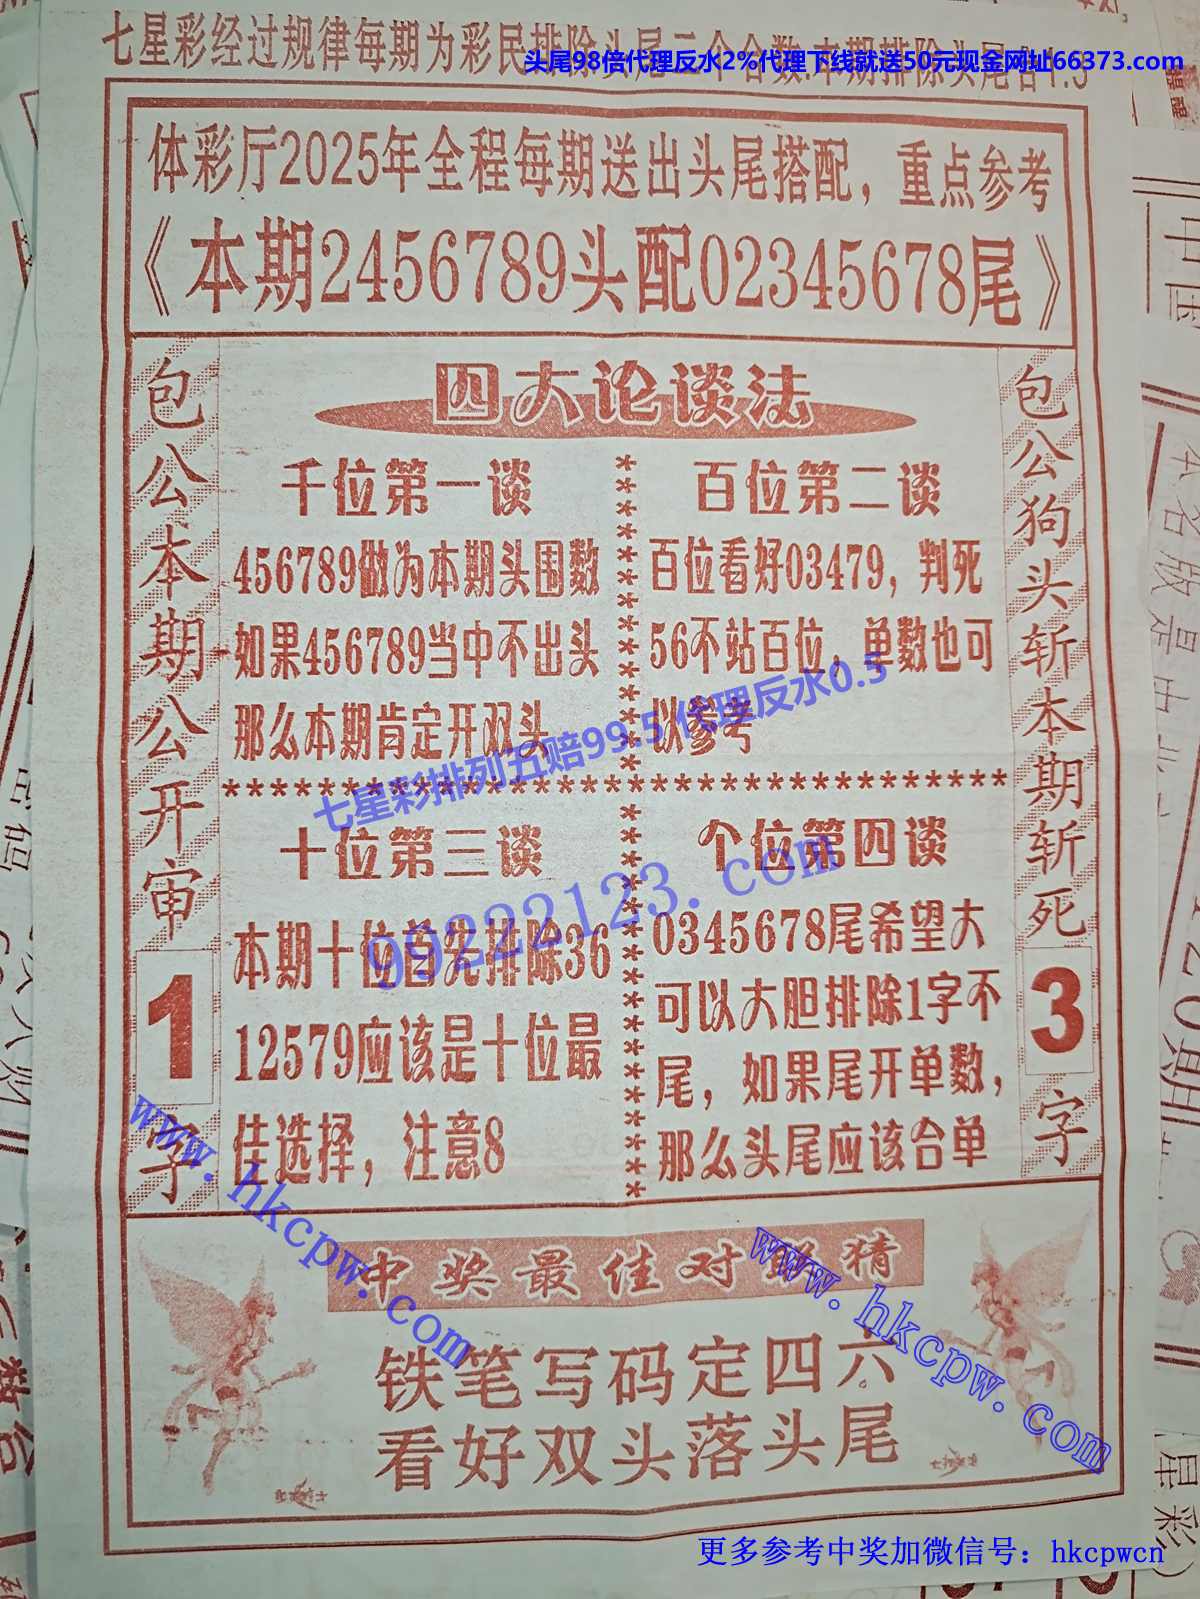 七星彩经过规律每期为彩民排除头尾二个合数.本期排除头尾合1.5
头尾98倍代理反水2%代理下线就送50元现金网址66373.com
体彩厅2025年全程每期送出头尾搭配，重点参考
《本期2456789头配02345678尾》
包公本期公开审1字
四大论谈法
千位第一谈
456789做为本期头围数
如果456789当中不出头
那么本期肯定开双头
百位第二谈
百位看好03479，判死
56不站百位，单数也可
以参考
七星彩排列五赔99.5 代理反水0.5
******************************
十位第三谈
本期十位首先排除36
12579应该是十位最
佳选择，注意8
个位第四谈
0345678尾希望大
可以大胆排除1字不
尾，如果尾开单数，
那么头尾应该合单
99222123.com
包公狗头斩本期斩死3字
www.hkcpw.com
www.hkcpw.com
中奖最佳对联猜
铁笔写码定四六
看好双头落头尾
更多参考中奖加微信号：hkcpwcn